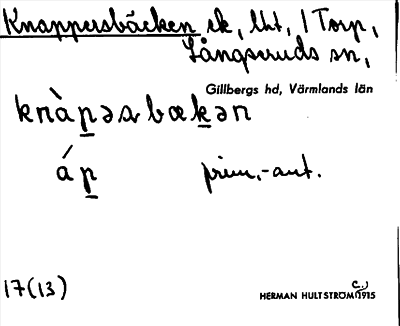 Knappersbäcken sk, lht, 1 Torp,
Långseruds sn,
Gillbergs hd, Värmlands län
knàp̱əʀbæḵən
áp̱ prim.-ant.
17(13)
HERMAN HULTSTRÖM c.) 1915